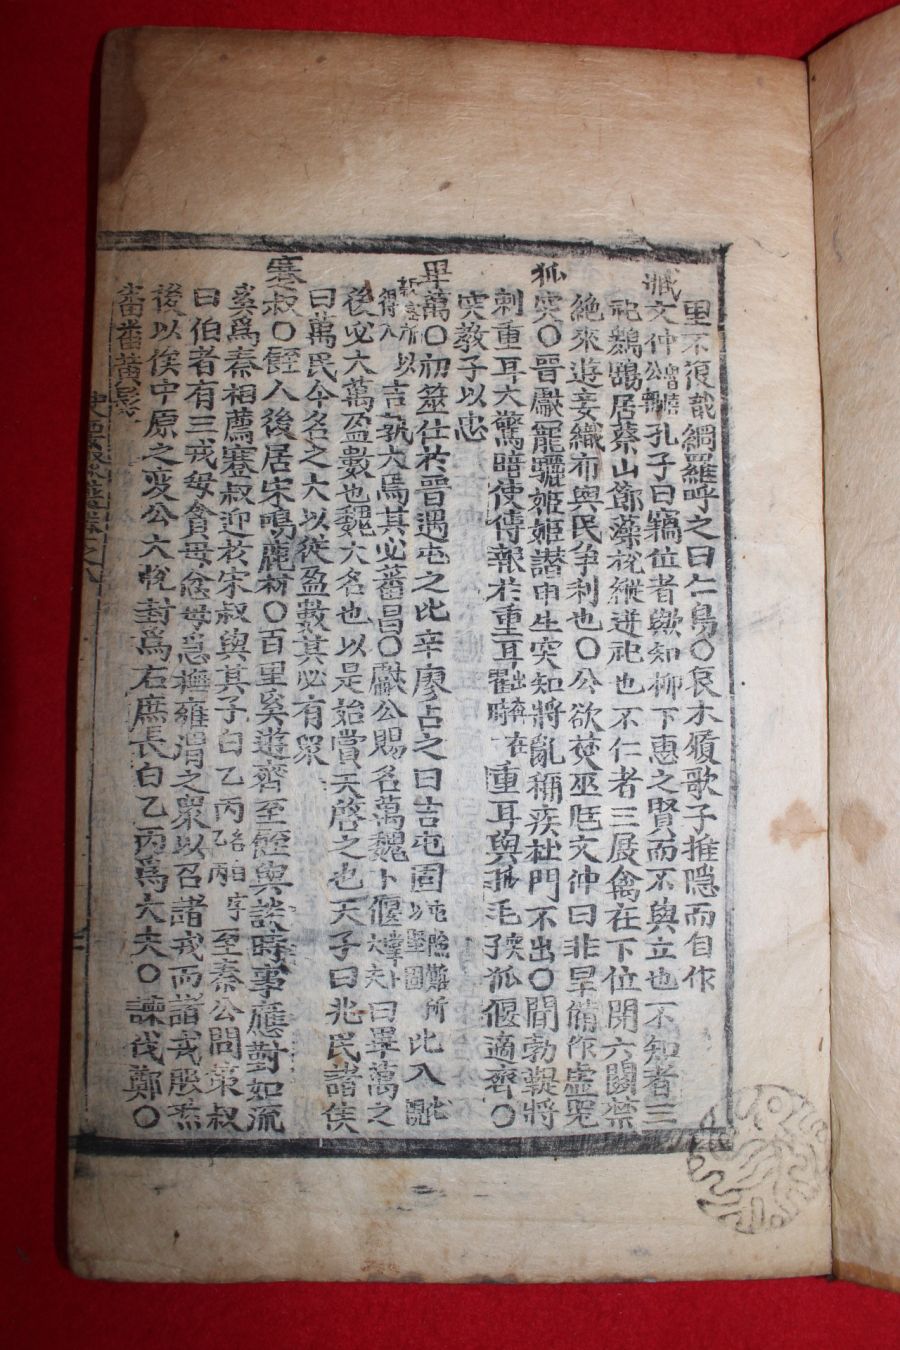 里不復哉網羅呼之曰仁鳥〇哀木類歌子推隱而自作
臧文仲孔子曰竊位者歟知柳下惠之賢而不與立也不知者三
祀鶢鶋居蔡山節藻梲縱逆祀也不仁者三展禽在下位開六關禁
絶來遊妾織布與民爭利也〇公欲焚巫尫文仲曰非旱備作虛器
狐突〇晉獻寵驪姬姬譖申生突知將亂稱疾杜門不出〇閽勃鞮將
刺重耳大驚暗使傳報於重耳時在重耳與狐毛狐偃適齊〇
突教子以忠
畢萬〇初筮仕於晉遇屯之比辛廖占之曰吉屯固比入
吉孰大焉其必蕃昌〇獻公賜名萬魏卜偃曰畢萬之
後必大萬盈數也魏大名也以是始賞天啓之也天子曰兆民諸侯
曰萬民今名之大以從盈數其必有衆
蹇叔〇人後居宋鳴鹿村〇百里奚遊齊至與談時事應對如流
奚爲秦相薦蹇叔迎於宋叔與其子白乙丙至秦公問策叔
曰伯者有三戒毋貪毋忿毋急撫雍渭之衆以召諸戎而諸戎服然
後以俟中原之変公大悅封爲右庶長白乙丙爲大夫〇諫伐鄭〇